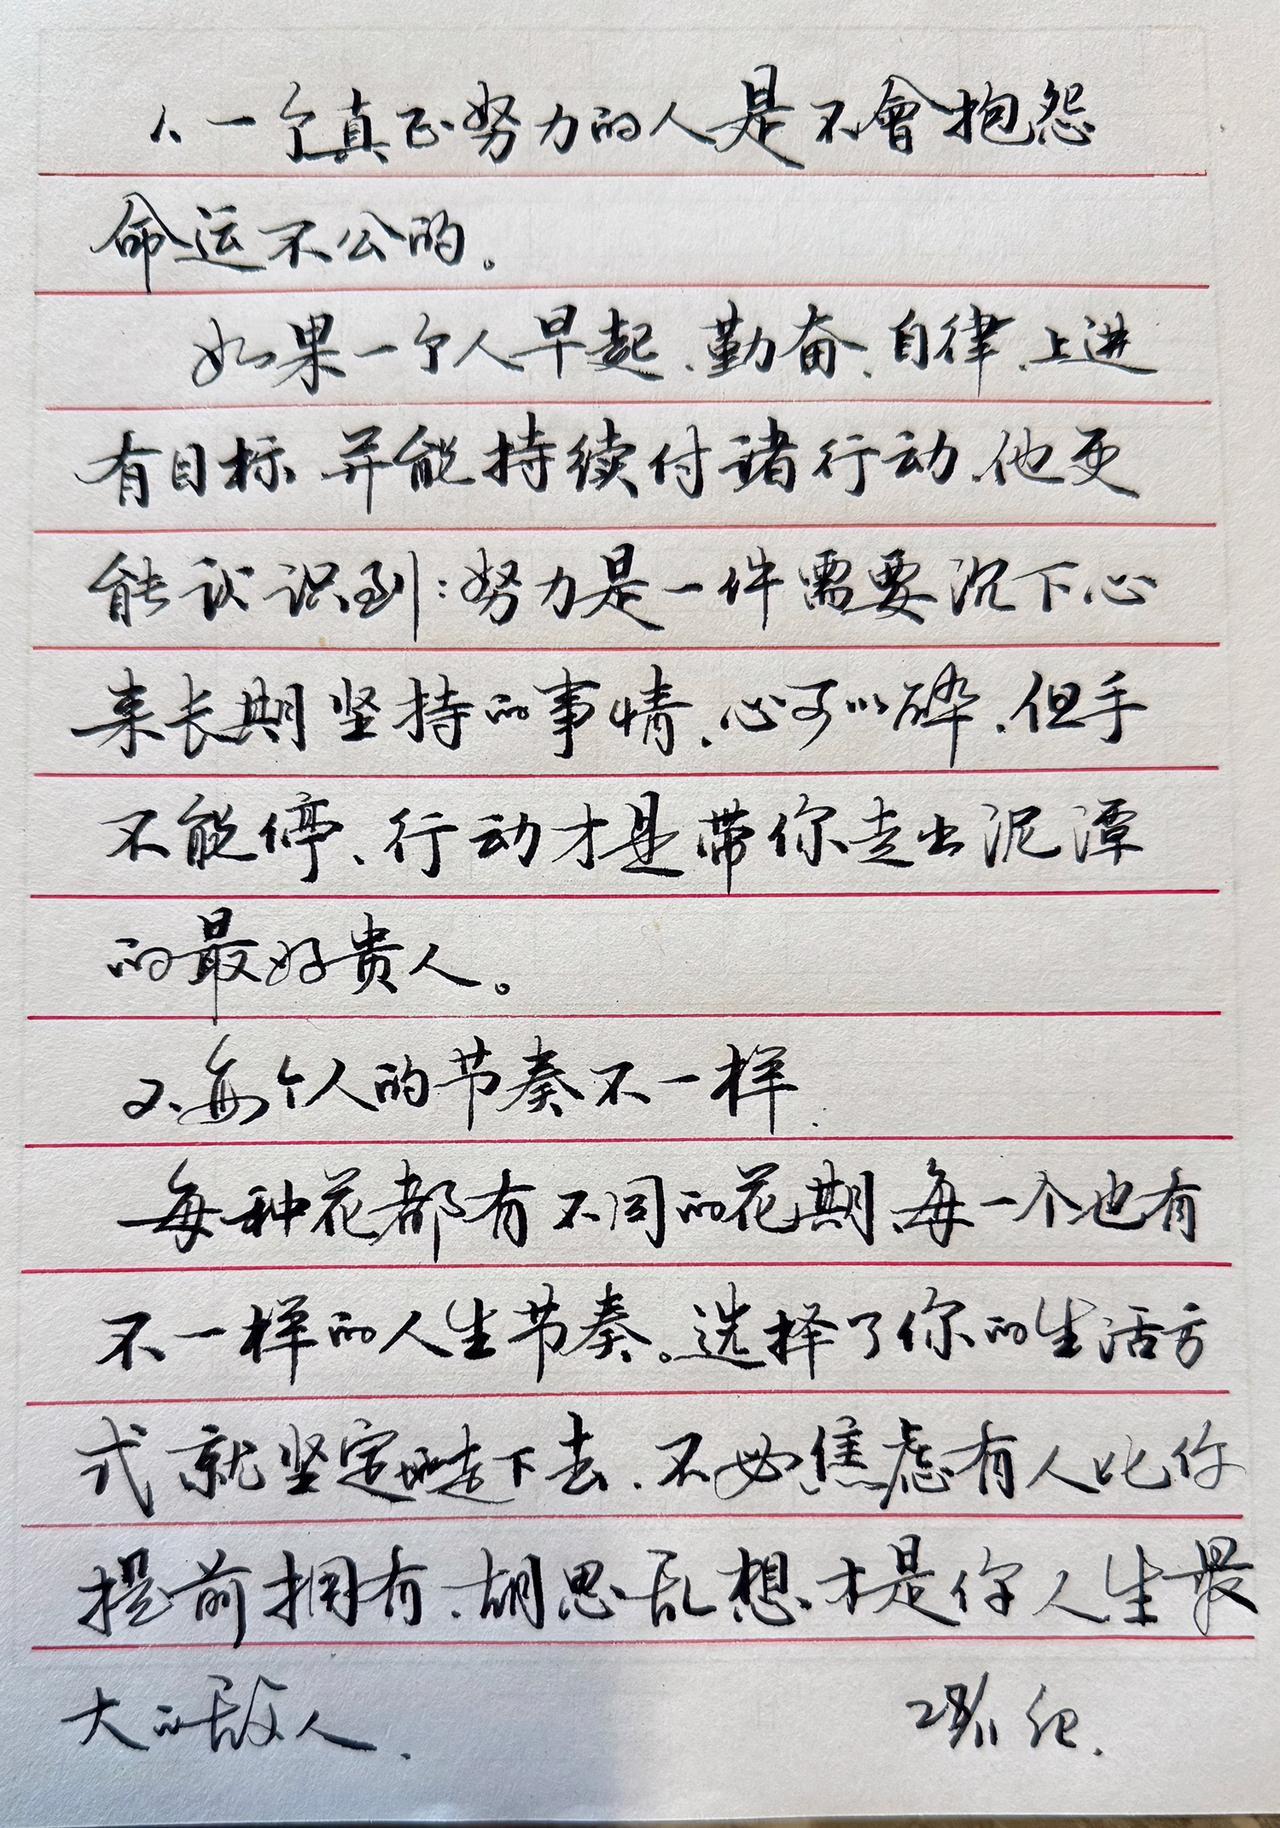 1、一个真正努力的人是不會抱怨
命运不公的。
如果一个人早起、勤奋、自律、上进
有目标 并能持续付诸行动、他更
能认识到:努力是一件需要沉下心
来长期坚持的事情、心可以碎、但手
不能停、行动才是带你走出泥潭
的最好贵人。
2、每个人的节奏不一样.
每种花都有不同的花期、每一个也有
不一样的人生节奏。选择了你的生活方
式就坚定地走下去、不必焦虑有人比你
提前拥有、胡思乱想、才是你人生最
大的敌人.
28/11